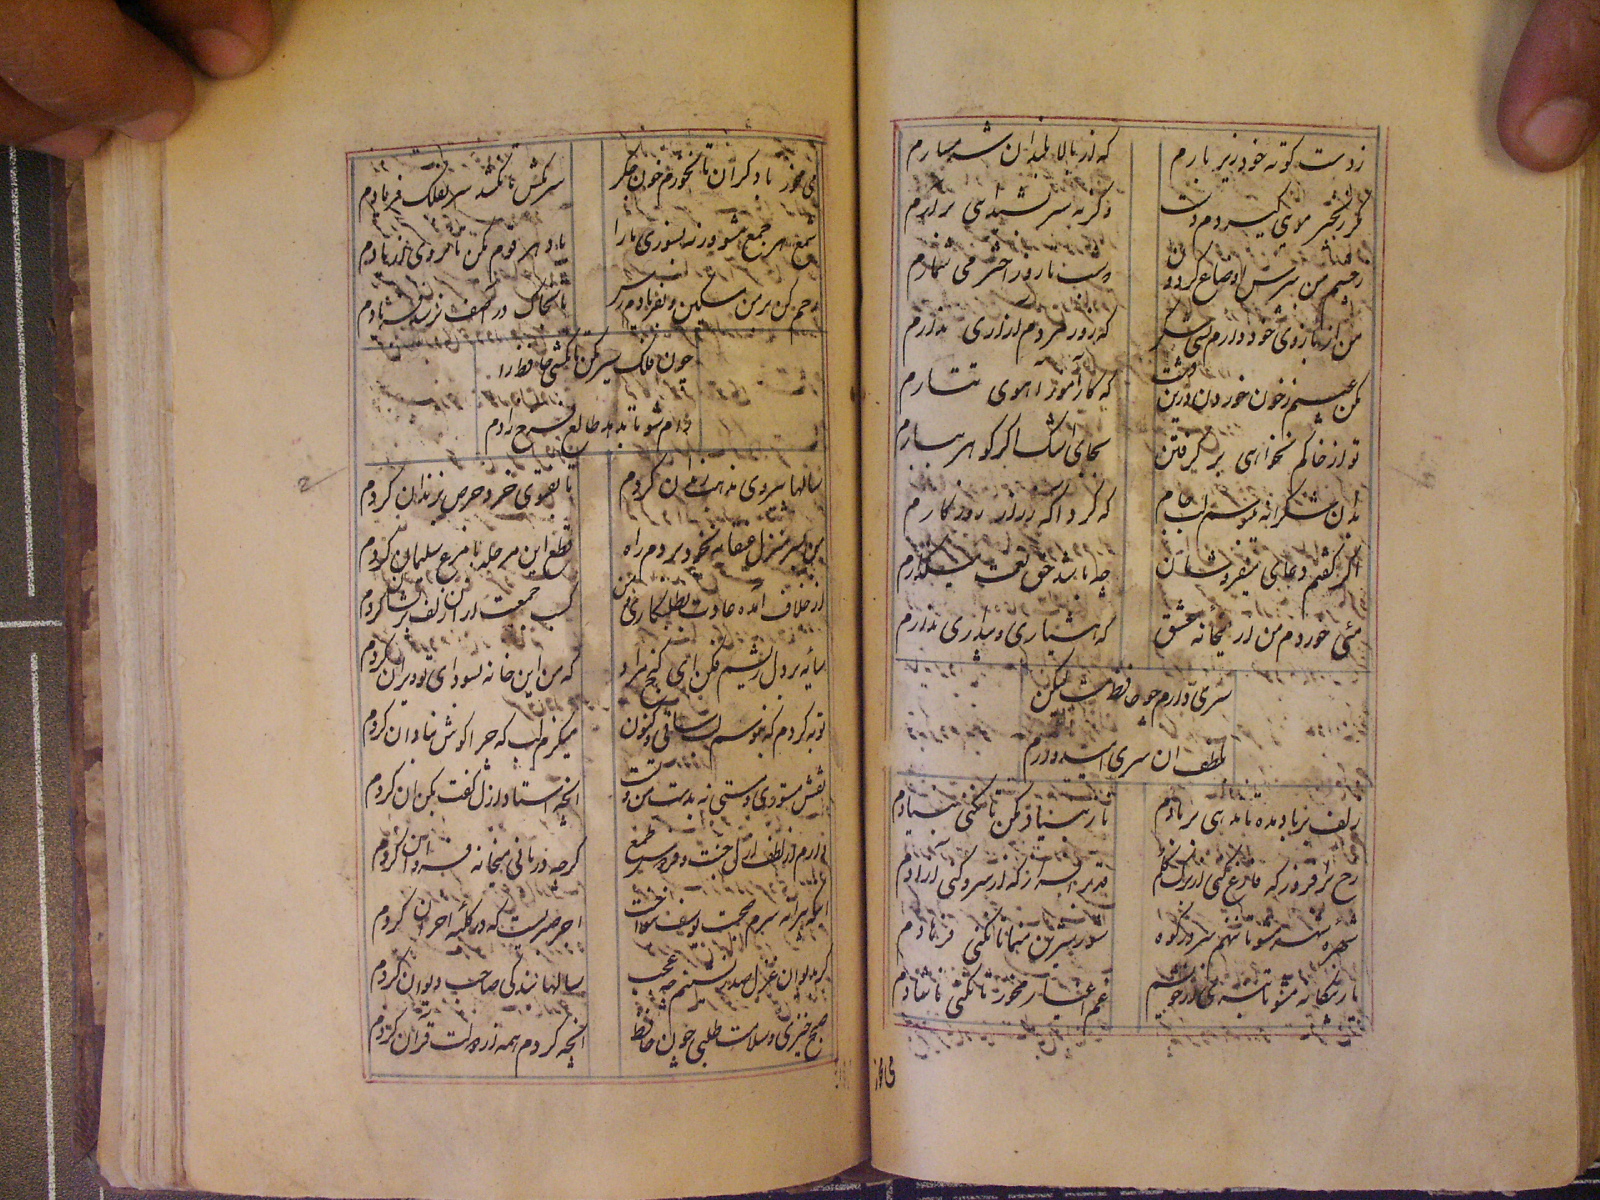 زدست کوته خود زیر بارم که از بالا بلندان شرمسارم
مگر زنجیر موی گیردم دست وگر نه سر بشیدایی برآرم
زچشم من بپرس اوضاع گردون که شب تا روز اختر می شمارم
من از بازوی خود دارم بسی شکر که زور مردم آزاری ندارم
مکن عیبم زخون خوردن درین دشت که کارآموز آهوی تتارم
تو از خاکم نخواهی بر گرفتن بجای اشک اگر گوهر ببارم
بدان شکرانه میبوسم لب جام که کرد آگه ز راز روزگارم
اگر گفتم دعای میفروشان چه باشد حق نعمت میگذارم
مئی خوردم من از میخانه عشق که هشیاری و بیداری ندارم
سری دارم چو حافظ مست لیکن
بلطف آن سری امیدوارم
زلف بر باد مده تا ندهی بر بادم ناز بنیاد مکن تا نکنی بنیادم
رخ برافروز که فارغ کنی از برگ گلم قد برافراز که از سرو کنی آزادم
شهره شهر مشو تا ننهم سر در کوه شور شیرین منما تا نکنی فرهادم
یار بیگانه مشو تا نبری از خویشم غم اغیار مخور تا نکنی ناشادم
می مخور
می مخور با دگران تا نخورم خون جگر سر مکش تا نکشد سر بفلک فریادم
شمع هر جمع مشو ورنه بسوزی ما را یاد هر قوم مکن تا نروی از یادم
رحم کن بر من مسکین و بفریادم رس تا بخاک در آصف نرسد فریادم
چون فلک سیر مکن تا نکشی حافظ را
رام شو تا بدهد طالع فرخ دادم
سالها پیروی مذهب رندان کردم تا بفتوی خرد حرص بزندان کردم
من بسر منزل عنقا نه بخود بردم راه قطع این مرحله با مرغ سلیمان کردم
از خلاف آمده عادت بطلب کاری من کسب جمعیت از آن زلف پریشان کردم
سایه بر دل ریشم فکن ای گنج مراد که من این خانه بسودای تو ویران کردم
توبه کردم که نبوسم لب ساقی و کنون میگزم لب که چرا گوش بنادان کردم
نقش مستوری و مستی نه بدست من و تست آنچه استاد ازل گفت بکن آن کردم
دارم از لطف ازل جنت فردوس طمع گرچه دربانی میخانه فراوان کردم
اینکه پیرانه سرم صحبت یوسف بنواخت اجر صبریست که در کلبه احزان کردم
گر بدیوان غزل صدر نشینم چه عجب سالها بندگی صاحب دیوان کردم
صبح خیزی و سلامت طلبی چون حافظ آنچه کردم همه از دولت قرآن کردم